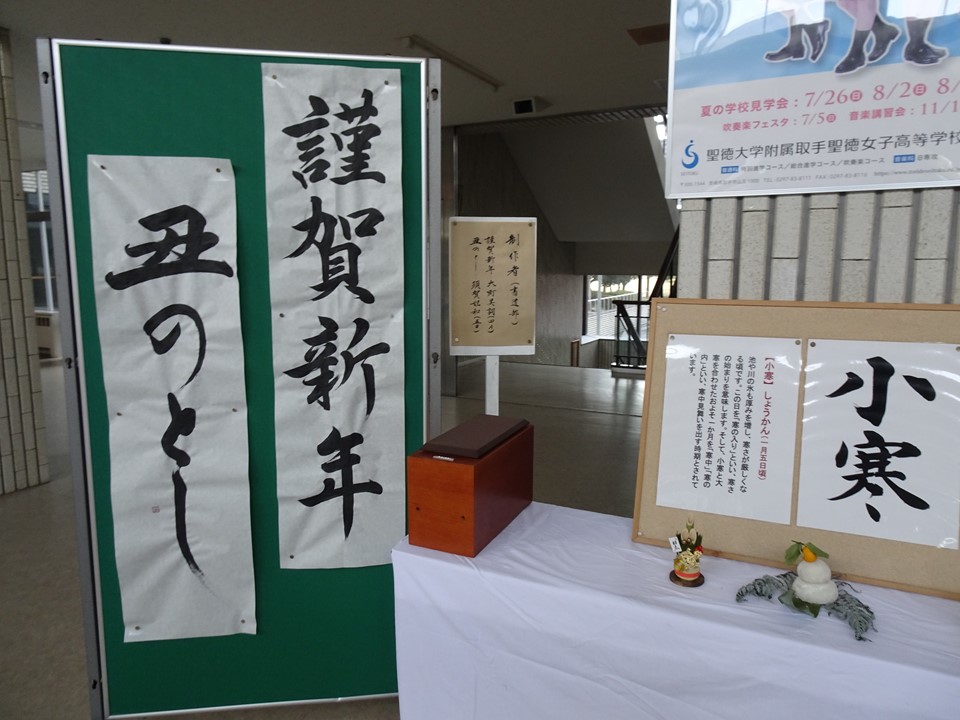 謹賀新年
丑のとし
制作者(書道部)
謹賀新年
丑のとし
夏の学校見学会:7/26㊐ 8/2㊐ 8/
吹奏楽フェスタ:7/5㊐ 音楽講習会:11/1
聖徳大学附属取手聖徳女子高等学校
音楽科
小寒
【小寒】しょうかん(一月五日頃)
池や川の氷も厚みを増し、寒さが厳しくな
る頃です。この日を「寒の入り」といい、寒さ
の始まりを意味します。そして、小寒と大
寒を合わせたおよそ一か月を「寒中」「寒の
内」といい、寒中見舞いを出す時期とされて
います。